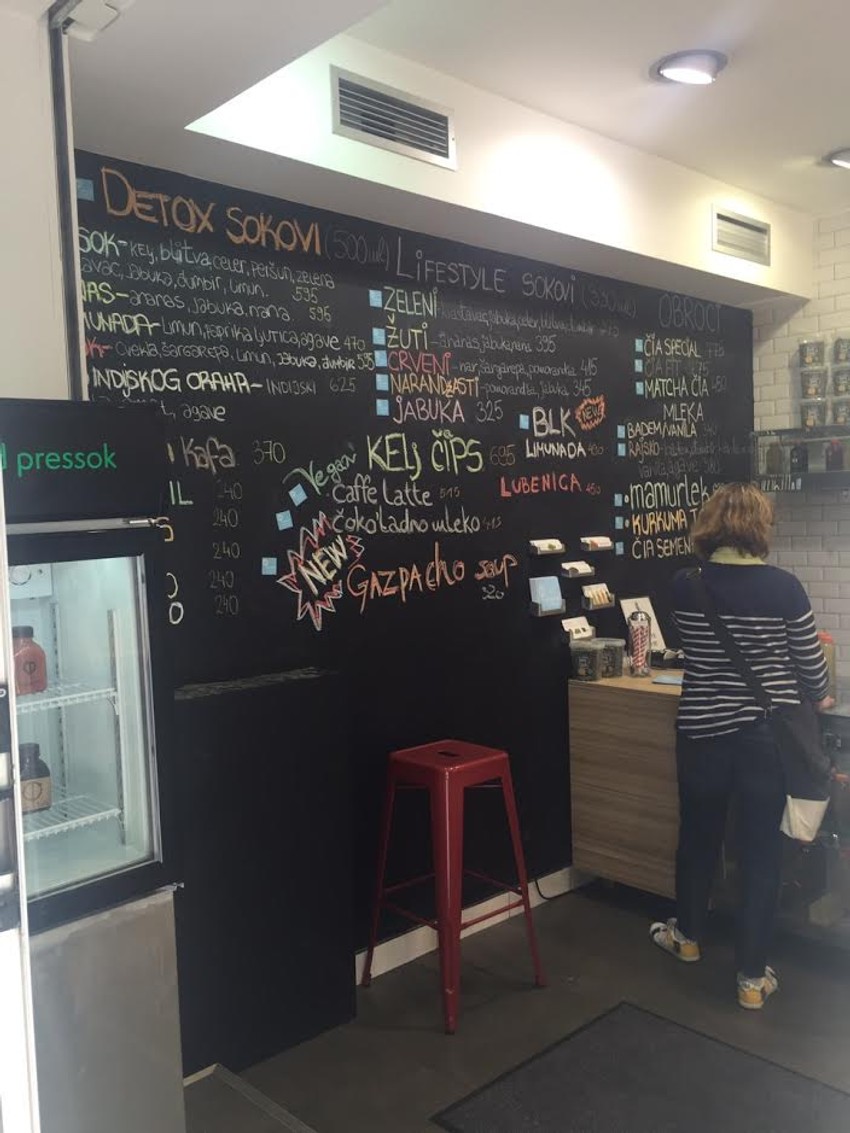 DETOX SOKOVI (500ml)
SOK- KELJ, blitva, celer, peršun, zelena
jabuka, đumbir, limun. 595
NAS- ananas, jabuka, nana 595
UNADA- Limun, paprika ljutica, agave 470
OK- Cvekla, šargarepa, limun, jabuka, đumbir 595
INDIJSKOG ORAHA- INDIJSKI 625
agave
Kafa 370
IL 240
240
240
240
O 240
LIFESTYLE SOKOVI (330ml)
ZELENI
ŽUTI - ananas, jabuka, nana 395
CRVENI - nar, šargarepa, pomorandža 415
NARANDŽASTI - pomorandža, jabuka 345
JABUKA 325
BLK NEW
LIMUNADA
LUBENICA 450
KELJ ČIPS 695
Vegan
Caffe Latte 515
Čokoladno mleko 415
NEW GAZPACHO SOUP
320
OBROCI
ČIA SPECIAL
ČIA FIT
MATCHA ČIA 450
MLEKA
BADEM/VANILA
RAJSKO
vanila, agave
mamurlek
KURKUMA
ČIA SEMEN
pressok